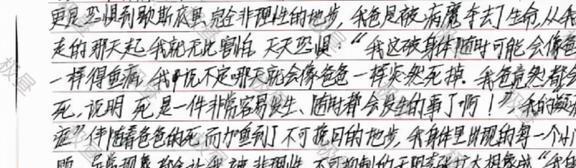 更是恐惧到歇斯底里、完全非理性的地步，我爸是被病魔夺去了生命，从我
走的那天起，我就无比害怕，天天恐惧：“我这破身体随时可能会像爸
一样得重病，我说不定哪天就会像爸爸一样突然死掉。我爸竟然都会
死，说明死是一件非常容易发生、随时都会发生的事了啊！”我的
症”伴随着爸爸的死而加重到了不可挽回的地步，我身体里出现的每一个小
我被非理性、不可抑制的无限